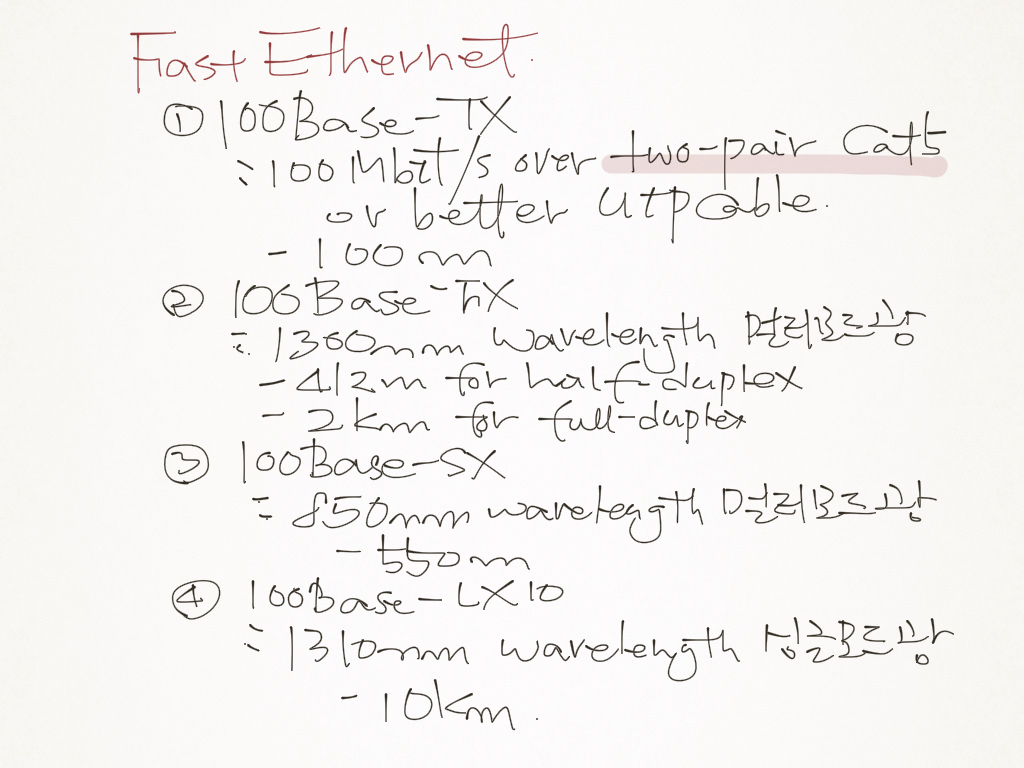 Fast Ethernet.
① 100Base-TX
: 100 Mbit/s over two-pair Cat5
or better UTP cable.
- 100 m
② 100Base-FX
: 1300nm wavelength 멀티모드광
- 412m for half-duplex
- 2km for full-duplex
③ 100Base-SX
: 850nm wavelength 멀티모드광
- 550m
④ 100Base-LX10
: 1310nm wavelength 싱글모드광
- 10km.